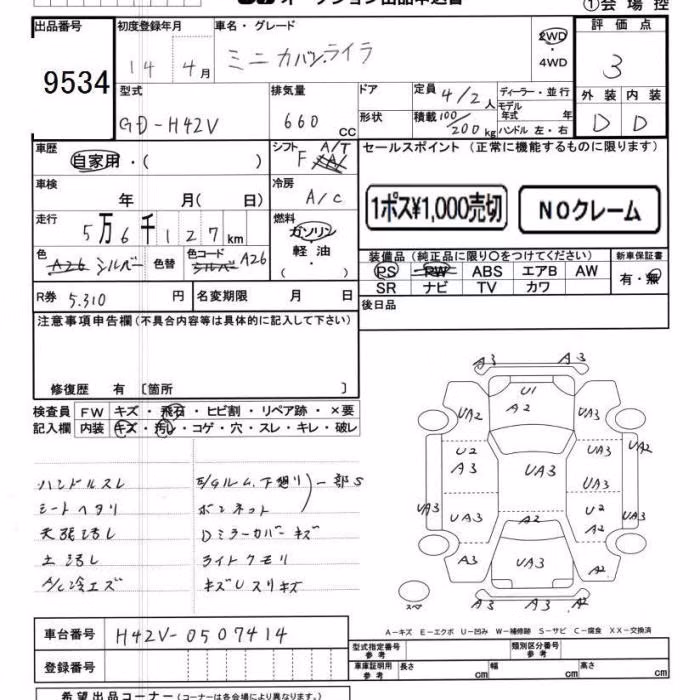 ①会場控
出品番号 9534
初度登録年月 14 4月
車名・グレード ミニカバン.ライラ
2WD・4WD
評価点 3
外装 D 内装 D
型式 GD-H42V
排気量 660cc
ドア
形状
定員 4/2人
積載 100/200kg
ディーラー・並行
モデル年式 年
ハンドル 左・右
車歴 自家用・( )
シフト A/T F
セールスポイント(正常に機能するものに限ります)
車検 年 月( 日)
冷房 A/C
1ポス¥1,000売切
NOクレーム
走行 5万6千127km
燃料 ガソリン 軽油・( )
色 A26 シルバー 色替
色コード シルバー A26
装備品(純正品に限り○をつけてください)
新車保証書
PS PW ABS エアB AW
有・無
SR ナビ TV カワ
R券 5.310円
名変期限 月 日
後日品
注意事項申告欄(不具合内容等は具体的に記入して下さい)
修復歴 有 〔箇所 〕
検査員記入欄
FW キズ・飛石・ヒビ割・リペア跡・×要
内装 キズ・汚れ・コゲ・穴・スレ・キレ・破レ
ハンドルスレ
シートヘタリ
天張汚し
土汚し
A/C冷エズ
E/Gルム、下廻り 一部S
ボンネット
Dミラーカバーキズ
ライトクモリ
キズUスリキズ
A3 A3
U1
A2
UA2 UA3
U2 A3
UA3
UA3
UA2
UA3
UA3
U2 A2
UA3
A2
A3
UA3
A2
A3 A3 A2
スペア
A-キズ E-エクボ U-凹み W-補修跡 S-サビ C-腐食 XX-交換済
車台番号 H42V-0507414
登録番号
型式指定番号 参考
類別区分番号 参考
車庫証明用 参考
長さ cm 幅 cm 高さ cm
希望出品コーナー(コーナーは各会場により異なります。)